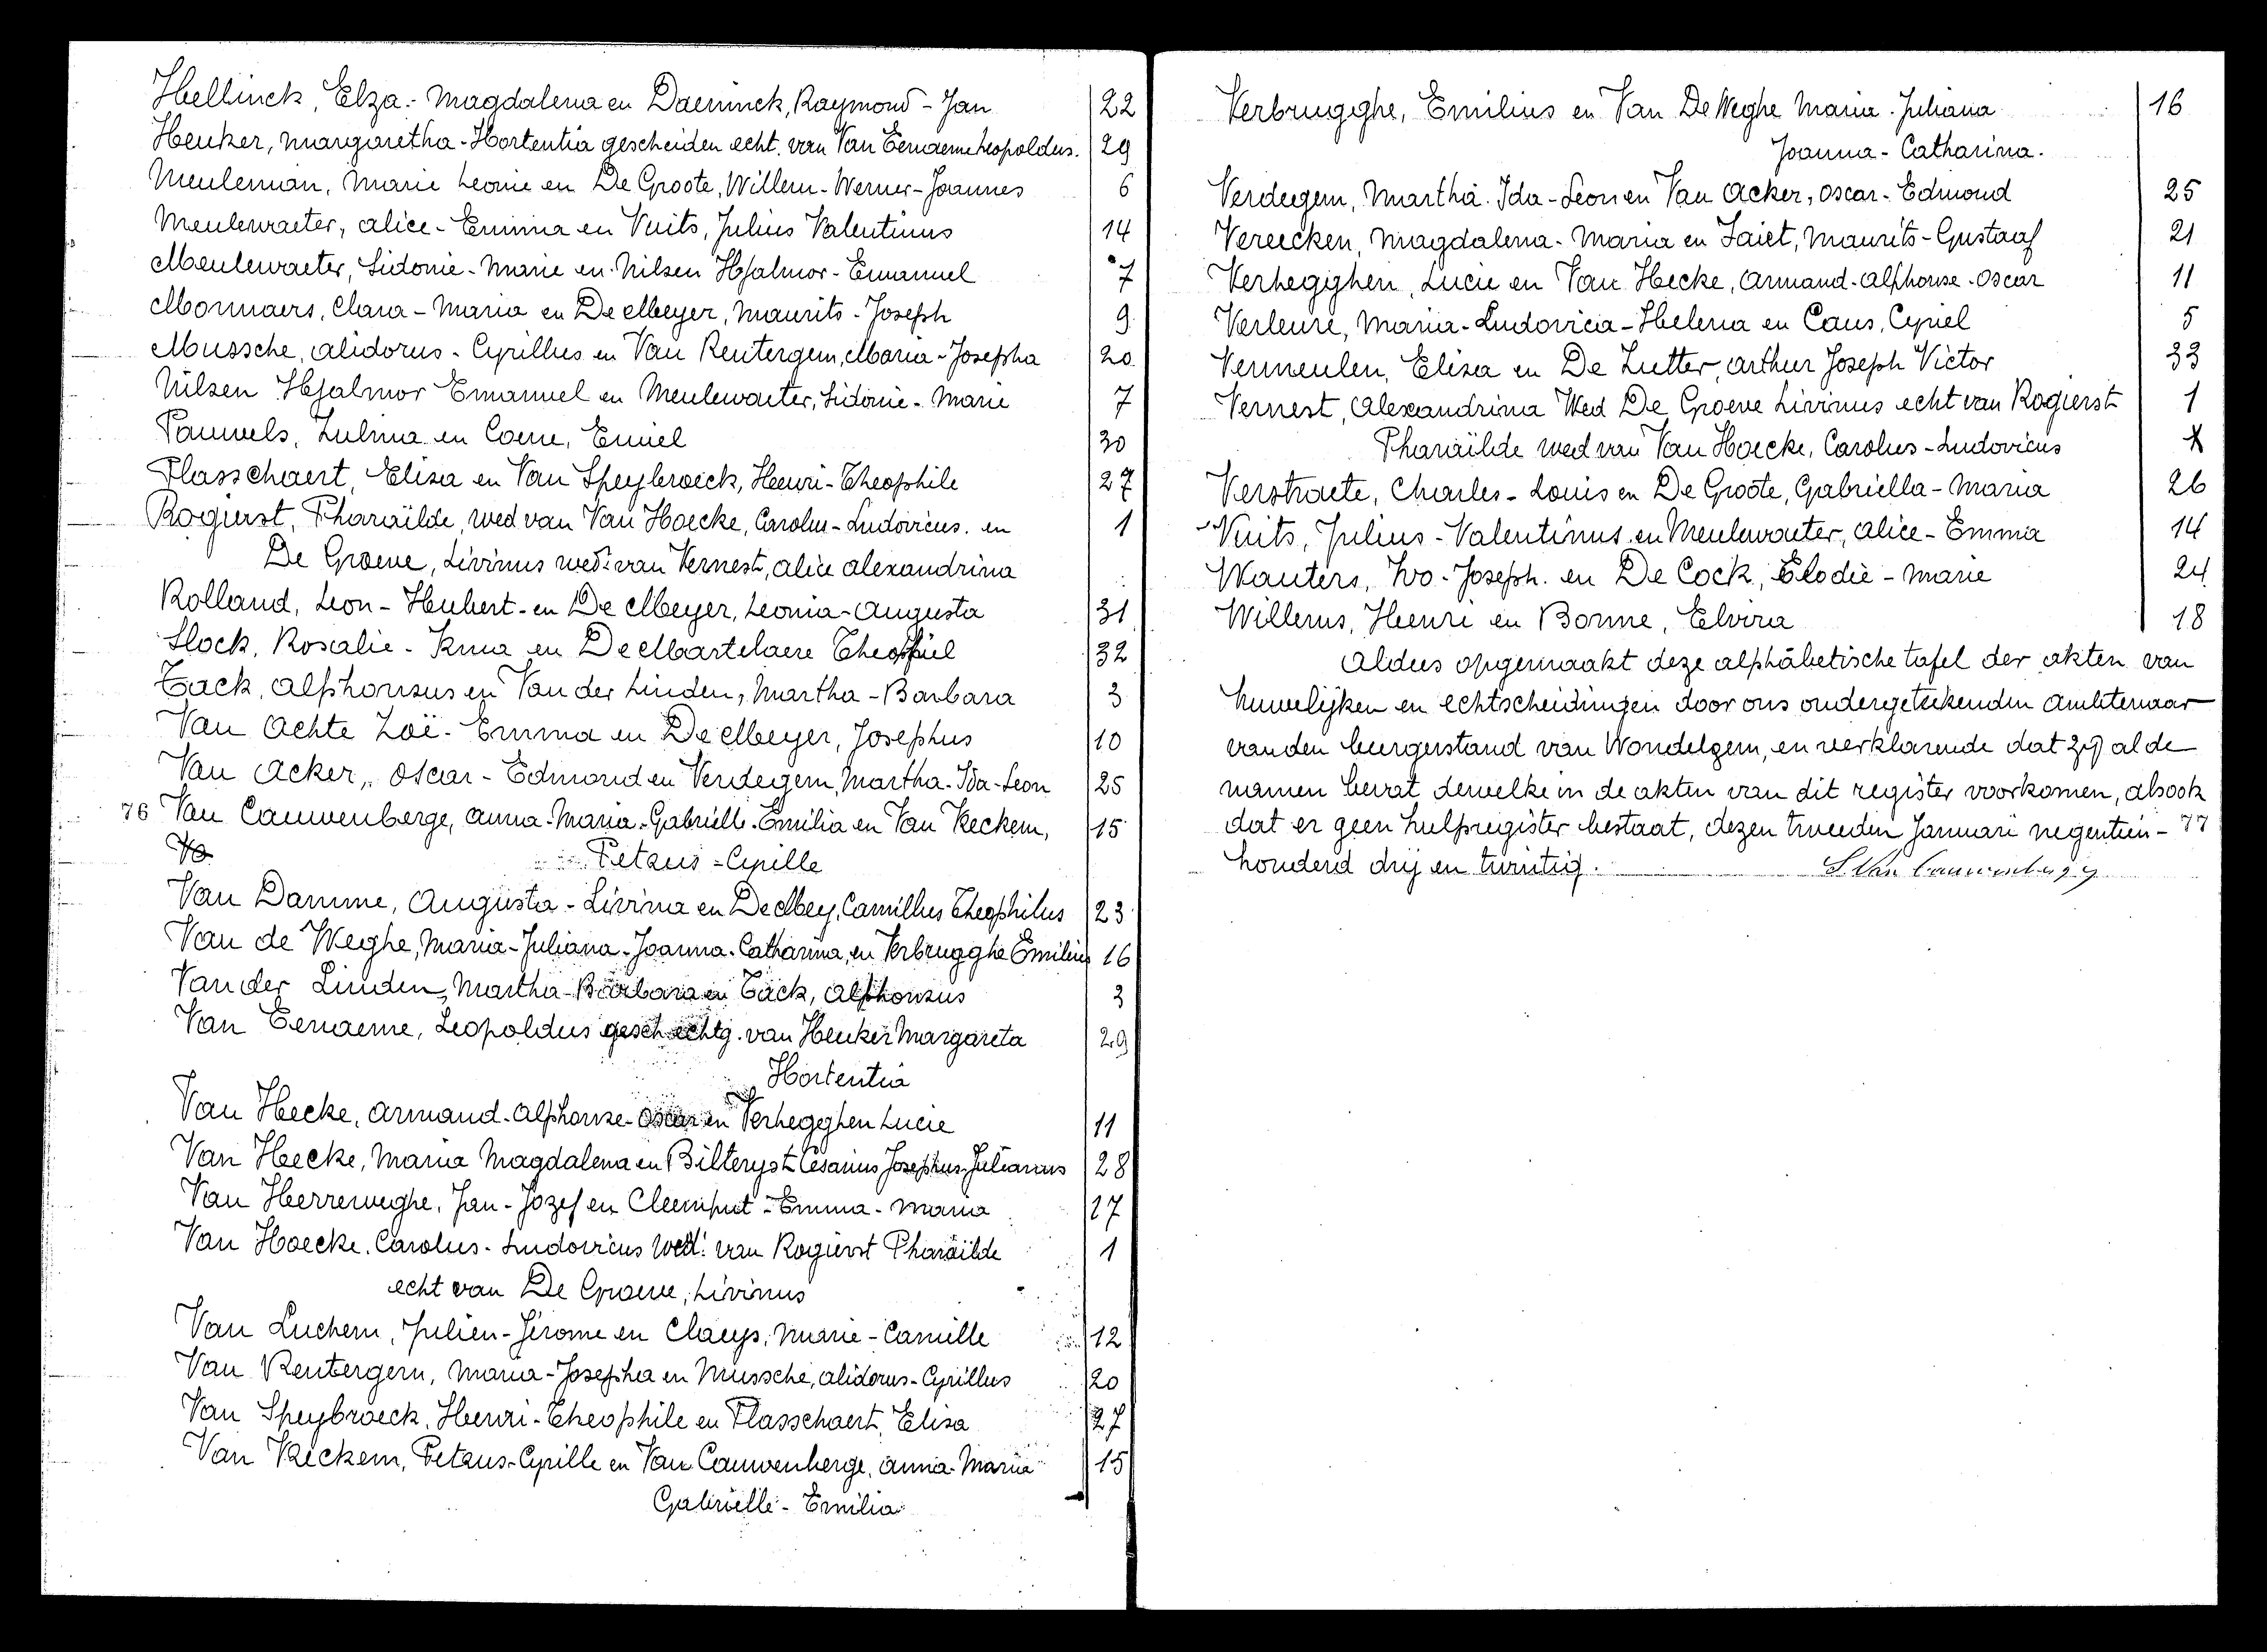 Hellinck, Elza - Magdalena en Daeninck, Raymond - Jan 22
Heuker, Margaretha - Hortentia gescheiden echt. van Van Eenaeme Leopoldus. 29
Meuleman, Marie Leonie en De Groote, Willem - Werner - Joannes 6
Meulewaeter, Alice - Emma en Vuits, Julius Valentinus 14
Meulewaeter, Sidonie - Marie en Nilsen Hjalmor - Emanuel 7
Monnaers, Clara - Maria en De Meyer, Maurits - Joseph 9
Mussche, Alidorus - Cyrillus en Van Rentergem, Maria - Josepha 20
Nilsen Hjalmor Emanuel en Meulewaeter, Sidonie - Marie 7
Pauwels, Zulma en Coene, Emiel 30
Plasschaert, Elisa en Van Speybroeck, Henri - Theophile 27
Rogierst, Pharaïlde, wed van Van Hoecke, Carolus - Ludovicus. en 1
De Groeve, Livinus wed: van Vernest, Alice Alexandrina
Rolland, Leon - Hubert - en De Meyer, Leonia - Augusta 31
Slock, Rosalie - Irma en De Martelaere Theophiel 32
Tack, Alphonsus en Van der Linden, Martha - Barbara 3
Van Achte Zoë - Emma en De Meyer, Josephus 10
Van Acker, Oscar - Edmond en Verdegem, Martha - Ida - Leon 25
76 Van Cauwenberge, Anna - Maria - Gabrielle - Emilia en Van Reckem, 15
Petrus - Cyrille
Van Damme, Augusta - Livina en De Mey, Camillus Theophilus 23
Van de Weghe, Maria - Juliana - Joanna - Catharina, en Verbrugghe Emilius 16
Van der Linden, Martha - Barbara en Tack, Alphonsus 3
Van Eenaeme, Leopoldus gesch. echtg. van Heuker Margareta 29
Hortentia
Van Hecke, Armand - Alphonse - Oscar en Verhegghen Lucie 11
Van Hecke, Maria Magdalena en Bilteryst Cesarius Josephus Julianus 28
Van Herreweghe, Jan - Jozef en Cleemput - Emma - Maria 17
Van Hoecke, Carolus - Ludovicus wed: van Rogierst Pharaïlde 1
echt van De Groeve, Livinus
Van Luchem, Julien - Jérome en Claeys, Marie - Camille 12
Van Rentergem, Maria - Josepha en Mussche, Alidorus - Cyrillus 20
Van Speybroeck, Henri - Theophile en Plasschaert, Elisa 27
Van Reckem, Petrus - Cyrille en Van Cauwenberge, Anna - Maria 15
Gabrielle - Emilia
Verbrugghe, Emilius en Van De Weghe Maria - Juliana 16
Joanna - Catharina.
Verdegem, Martha - Ida - Leon en Van Acker, Oscar - Edmond 25
Vereecken, Magdalena - Maria en Zaiet, Maurits - Gustaaf 21
Verhegghen, Lucie en Van Hecke, Armand - Alphonse - Oscar 11
Verleure, Maria - Ludovica - Helena en Caus, Cyriel 5
Vermeulen, Elisa en De Zutter, Arthur Joseph Victor 33
Vernest, Alexandrina Wed De Groeve Livinus echt van Rogierst 1
Pharaïlde wed van Van Hoecke, Carolus - Ludovicus
Verstraete, Charles - Louis en De Groote, Gabriella - Maria 26
Vuits, Julius - Valentinus en Meulewaeter, Alice - Emma 14
Wauters, Ivo - Joseph. en De Cock, Elodie - Marie 24
Willems, Henri en Bonne, Elvira 18
Aldus opgemaakt deze alphabetische tafel der akten van
huwelijken en echtscheidingen door ons ondergeteekenden ambtenaar
van den burgerstand van Wondelgem, en verklarende dat zij al de
namen bevat dewelke in de akten van dit register voorkomen, alsook
dat er geen hulpregister bestaat, dezen tweeden Januari negentien - 77
honderd drij en twintig. S. Van Cauwenberge